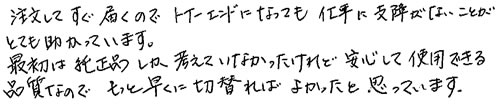 注文して すぐ 届くので トナーエンドになっても 仕事に 支障がないことが
とても助かっています。
最初は 純正品 しか 考えていなかったけれど 安心して 使用できる
品質なので もっと早くに 切替れば よかったと 思っています。